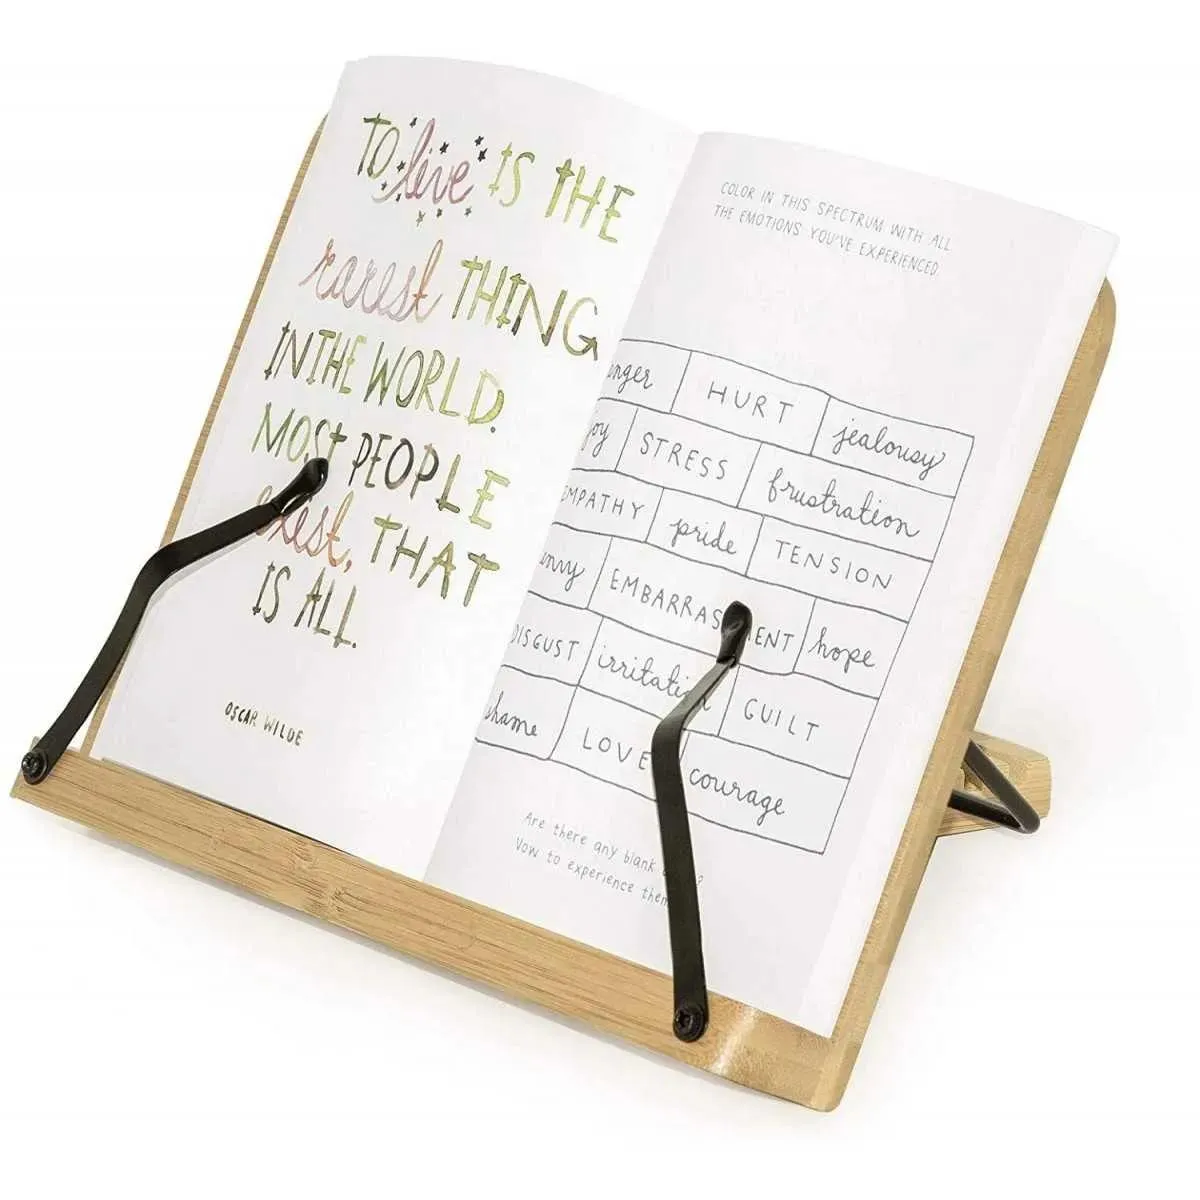 TO live IS THE
rarest THING
IN THE WORLD.
MOST PEOPLE
exist, THAT
IS ALL.
OSCAR WILDE
COLOR IN THIS SPECTRUM WITH ALL
THE EMOTIONS YOU'VE EXPERIENCED.
HURT jealousy
STRESS frustration
pride TENSION
hope
GUILT
LOVE courage
Are there any blank
Vow to experience